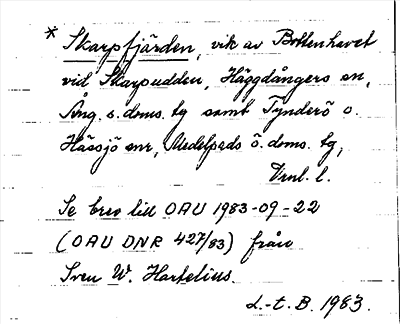 * Skarpfjärden, vik av Bottenhavet
vid Skarpudden, Häggdångers sn,
Ång. s. doms. tg samt Tynderö o.
Hässjö snr, Medelpads ö. doms. tg,
Vnl. l.
Se brev till OAU 1983-09-22
(OAU DNR 427/83) från
Sven W. Hartelius.
L.-t. B. 1983.